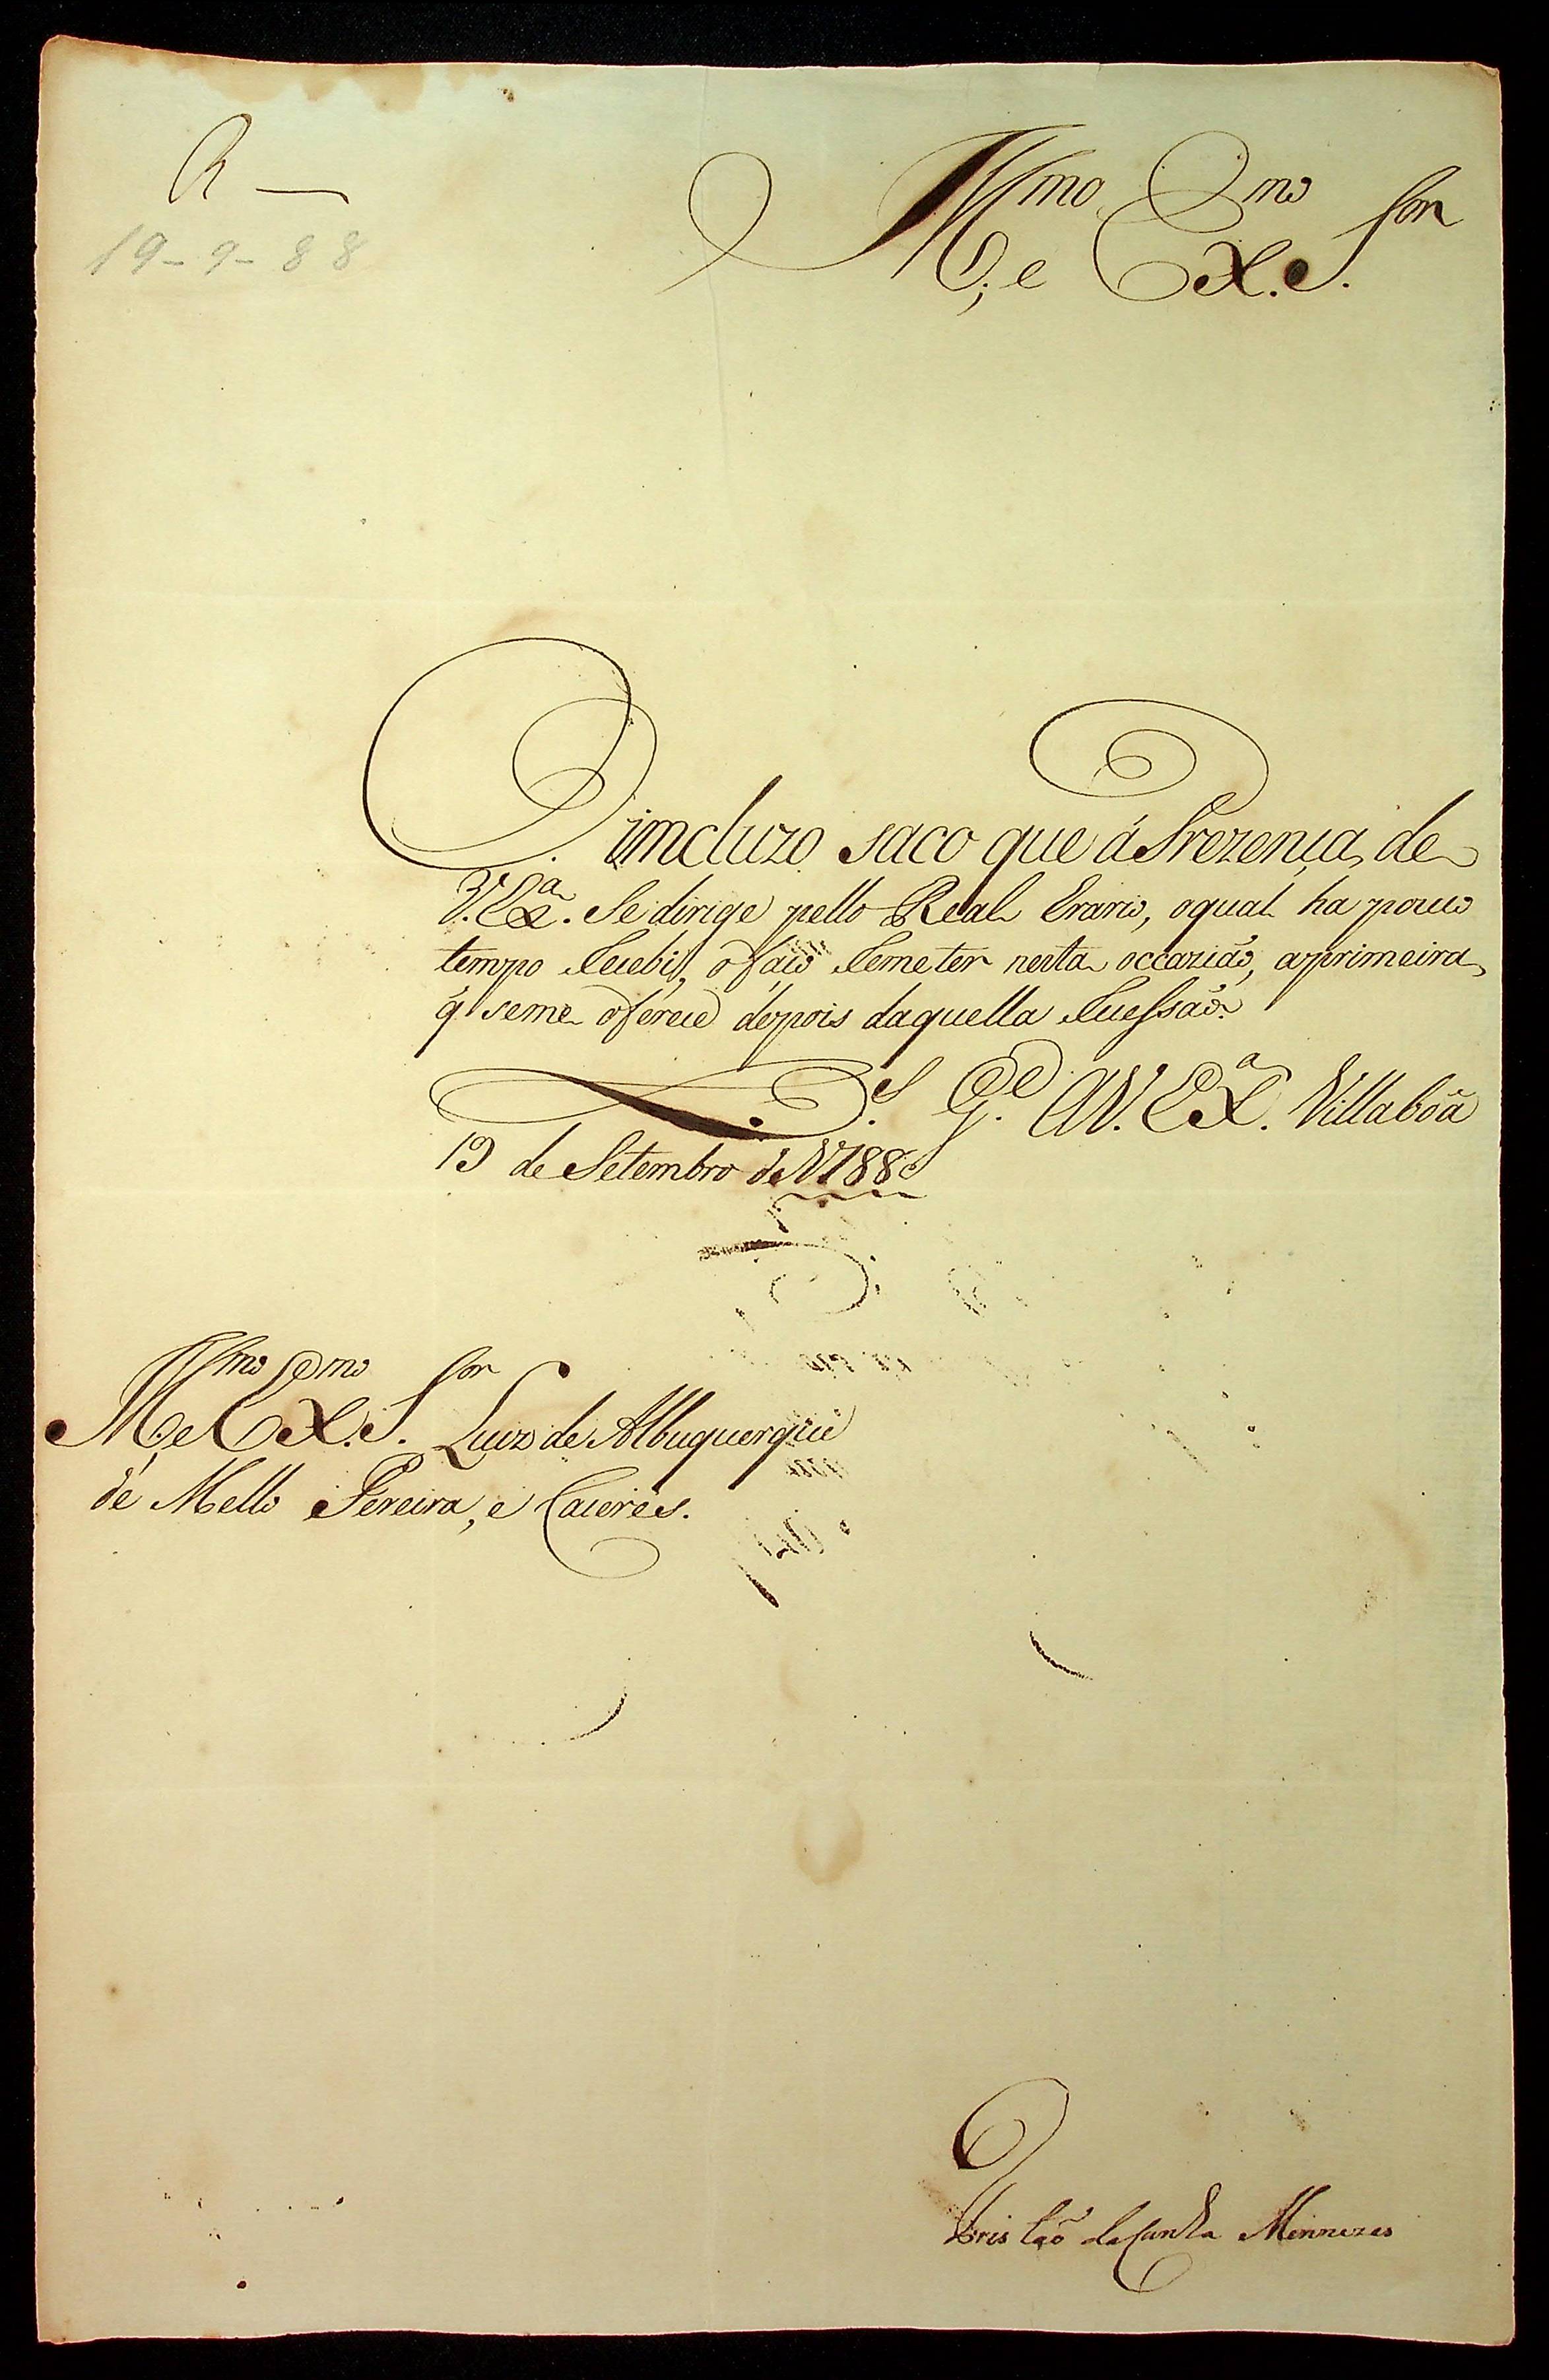 R —
19-9-88
Ill.mo, e Ex.mo S.or
O incluzo saco que á Prezença, de
V. Ex.a Se dirige pello Real Erario, oqual ha pouco
tempo Recebi, o faço Remeter nesta occazião, aprimeira,
q̃ seme oferece depois daquella Recessão.
D.s G.e A V. Ex.a Villa boã
19 de Setembro de 1788
Ill.mo e Ex.mo S.or Luiz de Albuquerque
de Mello Pereira, e Caceres.
Tristaõ da Cunha Mennezes